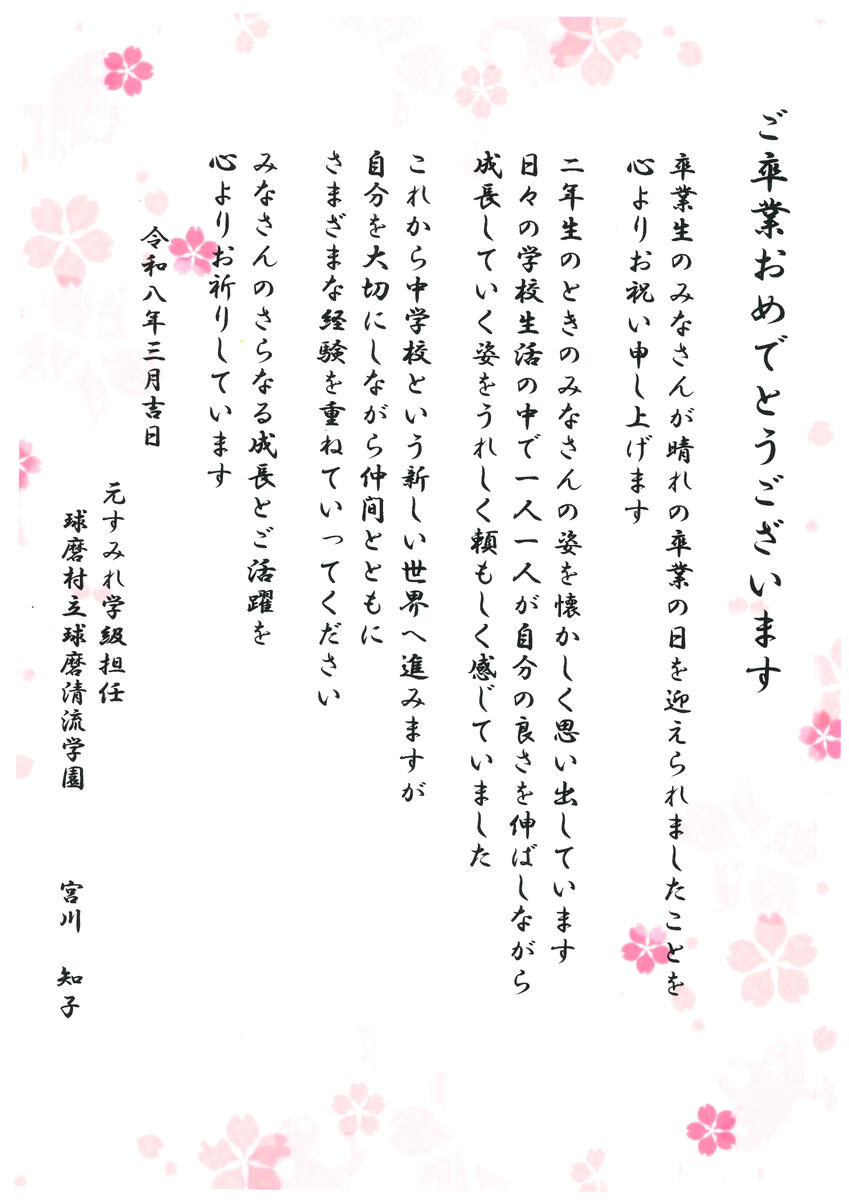 ご卒業おめでとうございます
卒業生のみなさんが晴れの卒業の日を迎えられましたことを
心よりお祝い申し上げます
二年生のときのみなさんの姿を懐かしく思い出しています
日々の学校生活の中で一人一人が自分の良さを伸ばしながら
成長していく姿をうれしく頼もしく感じていました
これから中学校という新しい世界へ進みますが
自分を大切にしながら仲間とともに
さまざまな経験を重ねていってください
みなさんのさらなる成長とご活躍を
心よりお祈りしています
令和八年三月吉日
元すみれ学級担任
球磨村立球磨清流学園　宮川　知子